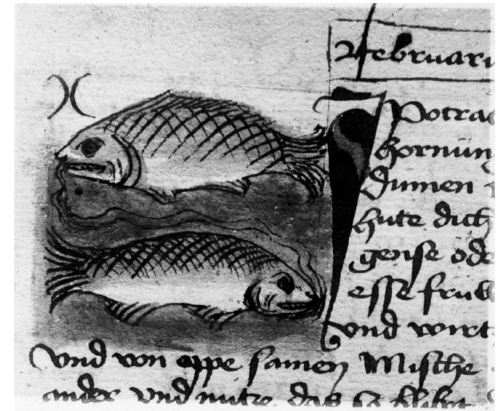 Februari
Potra
hornun
Dumen
hute dich
gense ode
esse frub
vnd wirt
Vnd von eppe samen Mische
ander vnd nutze das